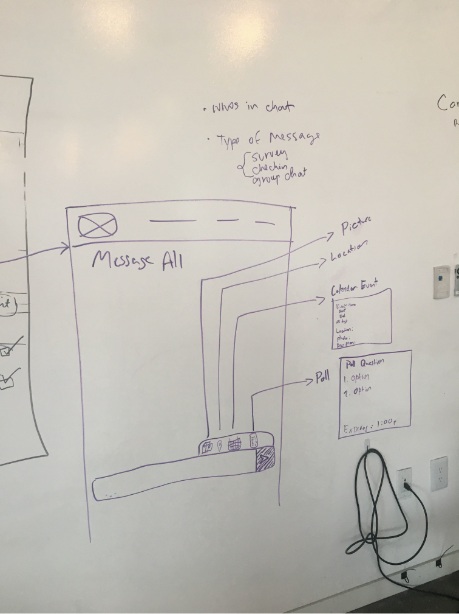 • Whos in chat
• Type of Message
survey
checkin
group chat
Message All
Picture
Location
Calendar Event
Poll
Poll Question
1. Option
2. Option